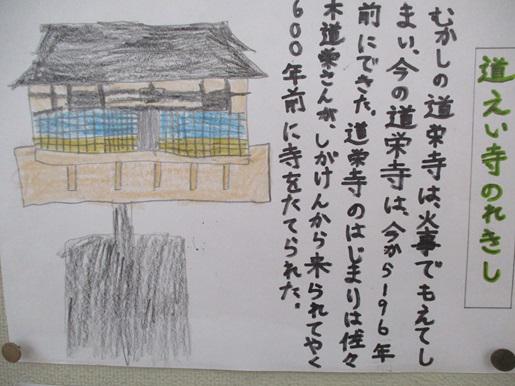 道えい寺のれきし
むかしの道栄寺は、火事でもえてし
まい、今の道栄寺は、今から196年
前にできた。道栄寺のはじまりは佐々
木道栄さんが、しがけんから来られてやく
600年前に寺をたてられた。